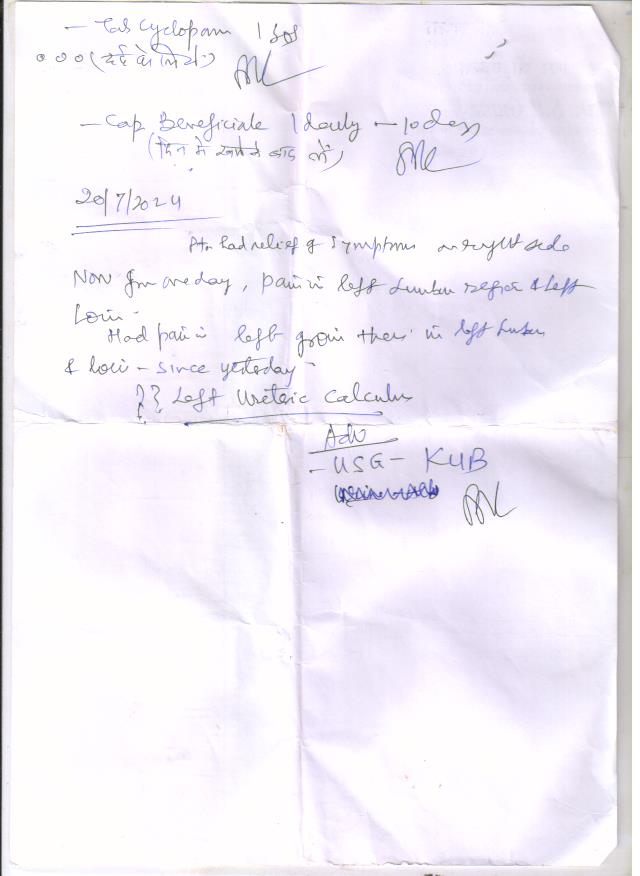 - Tab Cyclopam 1 SOS
००० (दर्द के लिये)
- Cap Beneficiale 1 daily - 10 days
(दिन में खाने के बाद लें)
20/7/2024
Ptn had relief of symptoms on right side
Now from one day, pain in left lumbar region & left
Loin -
Had pain in left groin then in left lumbar
& loin - since yesterday -
?? Left Ureteric Calculus
Adv
- USG - KUB